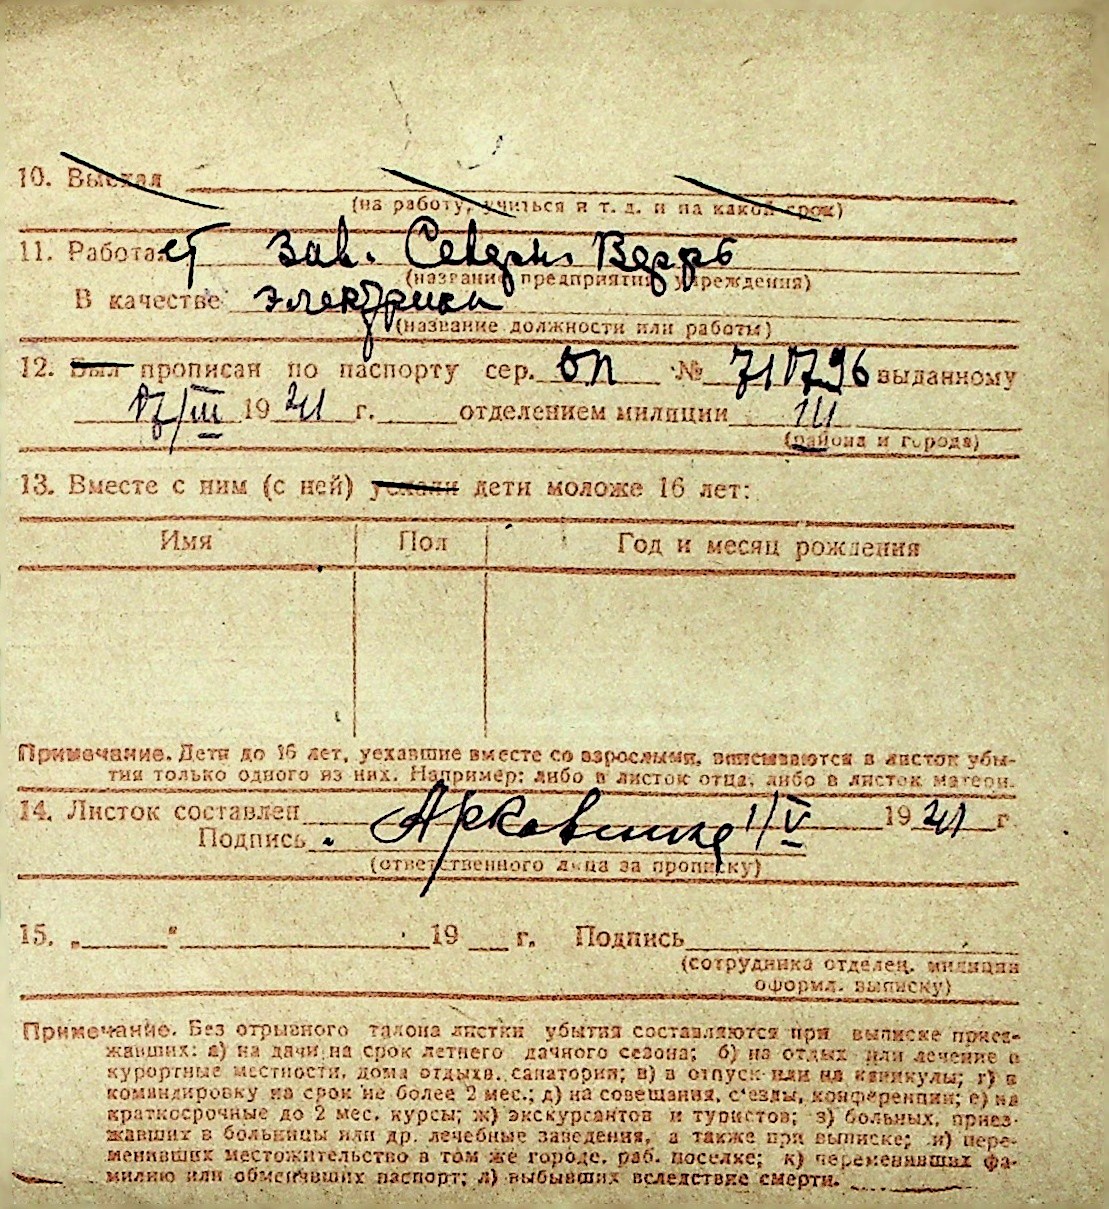 10. Выехал
(на работу, учиться и т. д. и на какой срок)
11. Работает зав. Северн. Верфь
(название предприятия, учреждения)
В качестве электрика
(название должности или работы)
12. Был прописан по паспорту сер. ОП № 717796 выданному
17/III 1941 г. отделением милиции III
(района и города)
13. Вместе с ним (с ней) уехали дети моложе 16 лет:
Имя Пол Год и месяц рождения
Примечание. Дети до 16 лет, уехавшие вместе со взрослыми, вписываются в листок убы-
тия только одного из них. Например: либо в листок отца, либо в листок матери.
14. Листок составлен 1/V 1941 г
Подпись
(ответственного лица за прописку)
15. „ “ 19 г. Подпись
(сотрудника отделен. милиции
оформл. выписку)
Примечание. Без отрывного талона листки убытия составляются при выписке приез-
жавших: а) на дачи на срок летнего дачного сезона; б) на отдых или лечение в
курортные местности, дома отдыха, санатории; в) в отпуск или на каникулы; г) в
командировку на срок не более 2 мес.; д) на совещания, с'езды, конференции; е) на
краткосрочные до 2 мес. курсы; ж) экскурсантов и туристов; з) больных, приез-
жавших в больницы или др. лечебные заведения, а также при выписке; и) пере-
менивших местожительство в том же городе, раб. поселке; к) переменивших фа-
милию или обменявших паспорт; л) выбывших вследствие смерти.